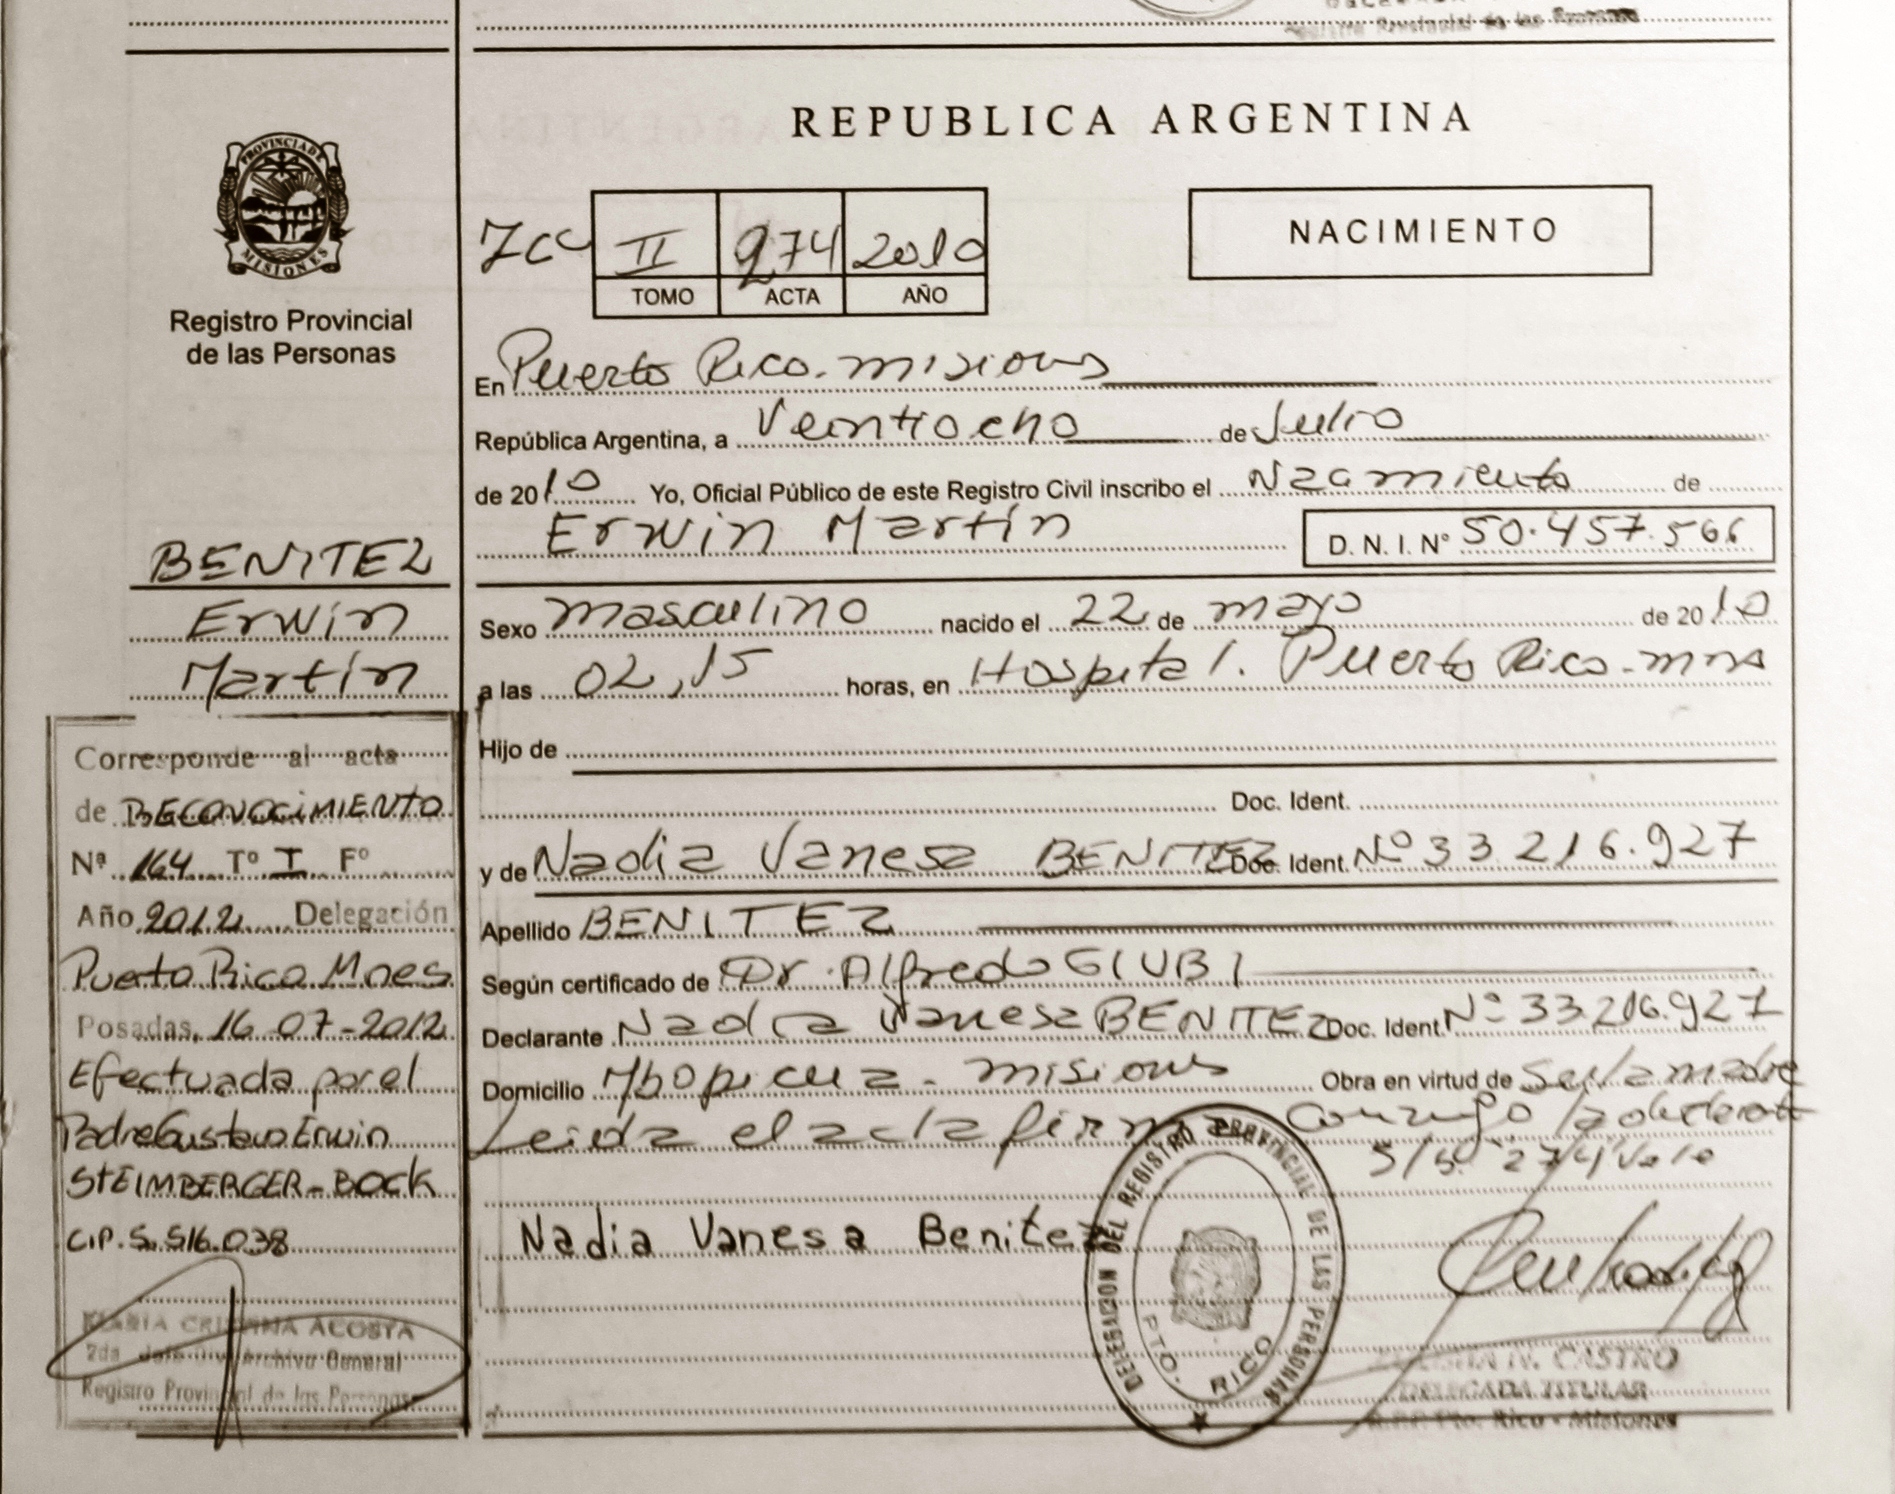 Registro Provincial de las Personas
REPUBLICA ARGENTINA
PROVINCIA DE
MISIONES
Registro Provincial
de las Personas
II 274 2010
TOMO ACTA AÑO
NACIMIENTO
En Puerto Rico. misiones
República Argentina, a Veintiocho de Julio
de 2010 Yo, Oficial Público de este Registro Civil inscribo el Nacimiento de
Erwin Martín D. N. I. Nº 50.457.566
Sexo masculino nacido el 22 de mayo de 2010
a las 02,15 horas, en Hospital. Puerto Rico-mns
Hijo de
Doc. Ident.
y de Nadia Vanesa BENITEZ Doc. Ident. Nº 33 216.927
Apellido BENITEZ
Según certificado de Dr. Alfredo GIUBI
Declarante Nadia Vanesa BENITEZ Doc. Ident. Nº 33.216.927
Domicilio Mbopicua - misiones Obra en virtud de ser la madre
Leida el acta firma conmigo la declarante
S/b. 274 Vale
Nadia Vanesa Benitez
DELEGACION DEL REGISTRO PROVINCIAL DE LAS PERSONAS
PTO. RICO
N. CASTRO
DELEGADA TITULAR
R.P.P. Pto. Rico - Misiones
BENITEZ
Erwin
Martín
Corresponde al acta
de RECONOCIMIENTO
Nª 164 Tº I Fº
Año 2012 Delegación
Puerto Rico Mnes
Posadas, 16-07-2012
Efectuada por el
Padre Gustavo Erwin
STEIMBERGER-BOCK
C.I.P. 5.516.038
MARIA CRISTINA ACOSTA
2da Archivo General
Registro Provincial de las Personas